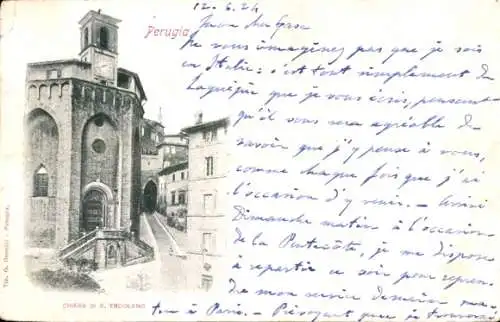 12.6.24
Perugia
Mon cher Gaso
Ne vous imaginez pas que je sois
en Italie: c'est tout simplement de
Laguépie que je vous écris, pensant
qu'il vous sera agréable de
savoir que j'y pense à vous,
comme chaque fois que j'ai
l'occasion d'y venir. Arrivé
Dimanche matin à l'occasion
de la Pentecôte, je me dispose
à repartir ce soir pour repren-
dre mon service demain ma-
tin à Paris. Prévoyant que je
CHIESA DI S. ERCOLANO
Perugia.